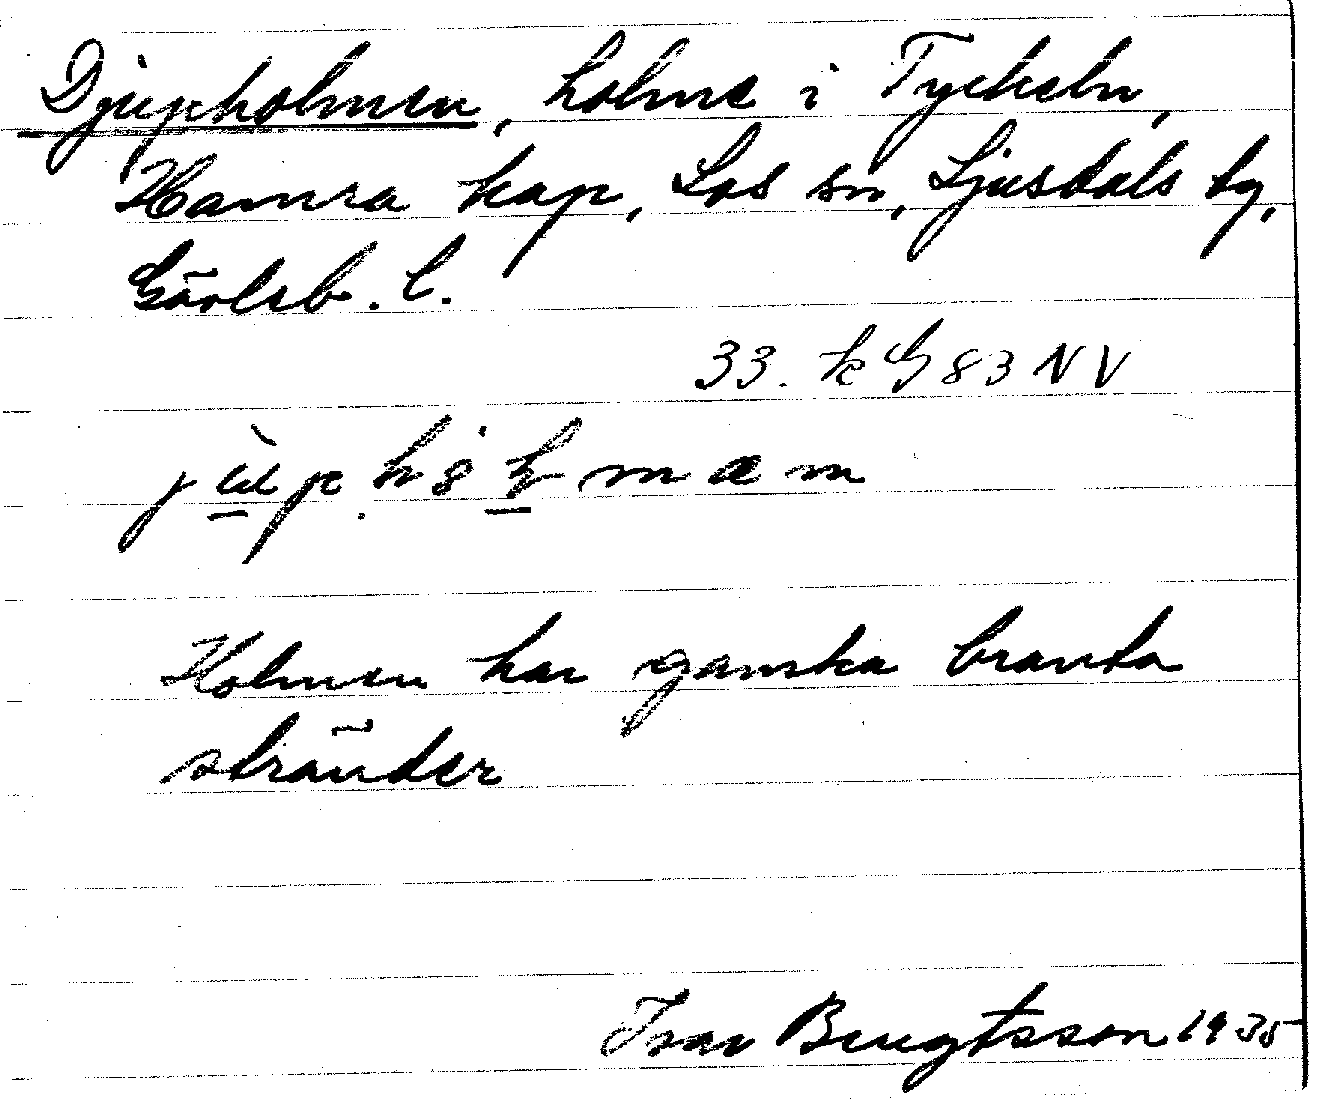 Djupholmen, holme i Tyckeln,
Hamra kap, Los sn, Ljusdals tg,
Gävleb. l.
33. k G 83 NV
Holmen har ganska branta
stränder
Ivar Bengtsson 1935